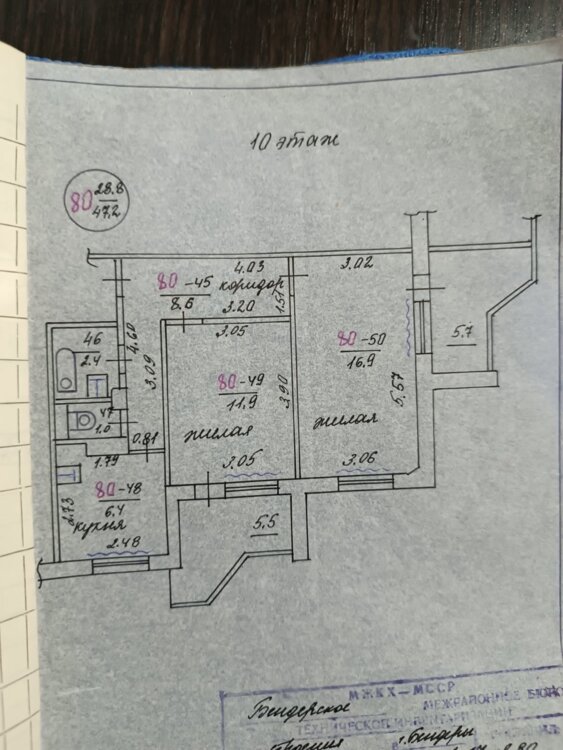 10 этаж
80 28.8
47.2
4.03
3.02
80 -45
коридор
8.6
3.20
1.51
5.7
46
2.4
4.60
3.09
3.05
80 -50
16.9
80 -49
11.9
3.90
5.57
47
1.0
жилая
жилая
0.81
1.79
3.05
3.06
80 -48
6.4
2.73
кухня
2.48
5.5
МЖКХ-МССР
Бендерское
МЕЖРАЙОННОЕ БЮРО
ТЕХНИЧЕСКОЙ ИНВЕНТАРИЗАЦИИ
г. Бендеры